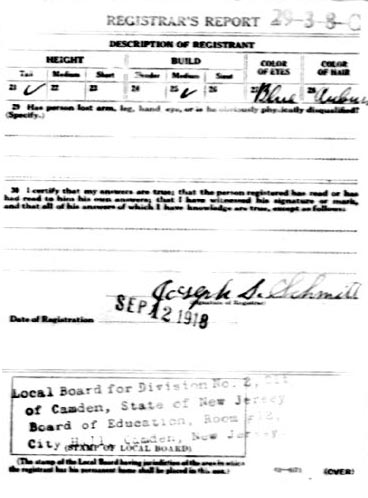 REGISTRAR'S REPORT 29-3-8-C
DESCRIPTION OF REGISTRANT
HEIGHT BUILD COLOR OF EYES COLOR OF HAIR
Tall Medium Short Slender Medium Stout
21 ✓ 22 23 24 25 ✓ 26 27 Blue 28 Auburn
29 Has person lost arm, leg, hand, eye, or is he obviously physically disqualified?
(Specify.)
30 I certify that my answers are true; that the person registered has read or has
had read to him his own answers; that I have witnessed his signature or mark,
and that all of his answers of which I have knowledge are true, except as follows:
Joseph S. Schmitt
(Signature of Registrar)
Date of Registration SEP 12 1918
Local Board for Division No. 2, City
of Camden, State of New Jersey
Board of Education, Room
City Hall, Camden, New Jersey.
(STAMP OF LOCAL BOARD)
(The stamp of the Local Board having jurisdiction of the area in which
the registrant has his permanent home shall be placed in this box.)
(OVER)